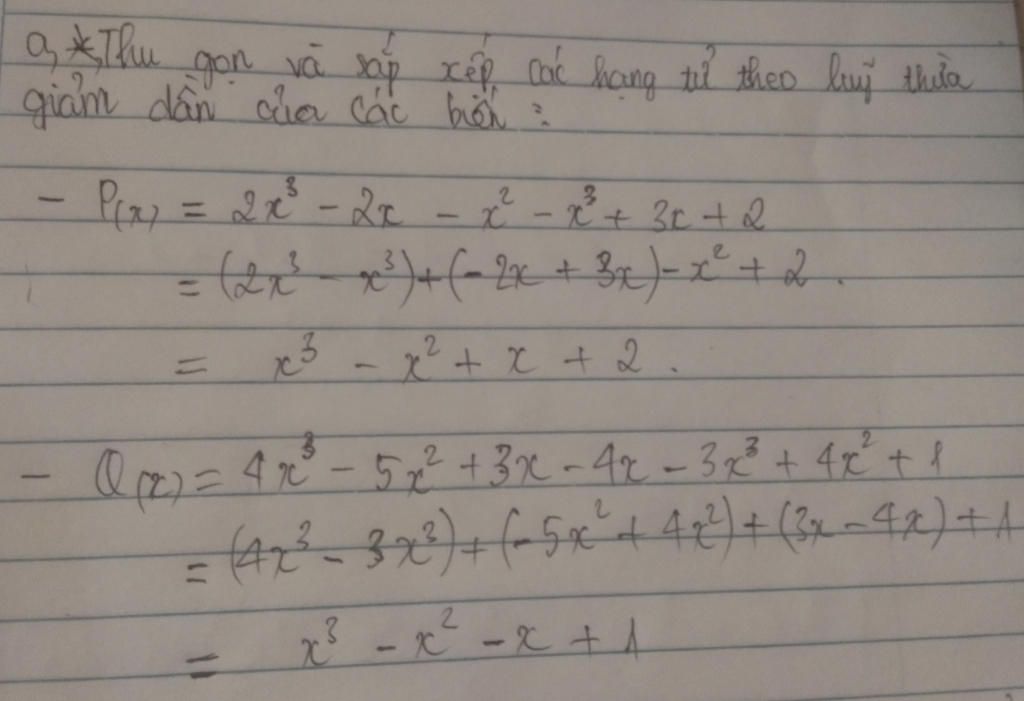 a, *, Thu gọn và sắp xếp các hạng tử theo luỹ thừa
giảm dần của các biến :
- P(x) = 2x³ - 2x - x² - x³ + 3x + 2
= (2x³ - x³) + (- 2x + 3x) - x² + 2 .
= x³ - x² + x + 2 .
- Q(x) = 4x³ - 5x² + 3x - 4x - 3x³ + 4x² + 1
= (4x³ - 3x³) + (-5x² + 4x²) + (3x - 4x) + 1
= x³ - x² - x + 1